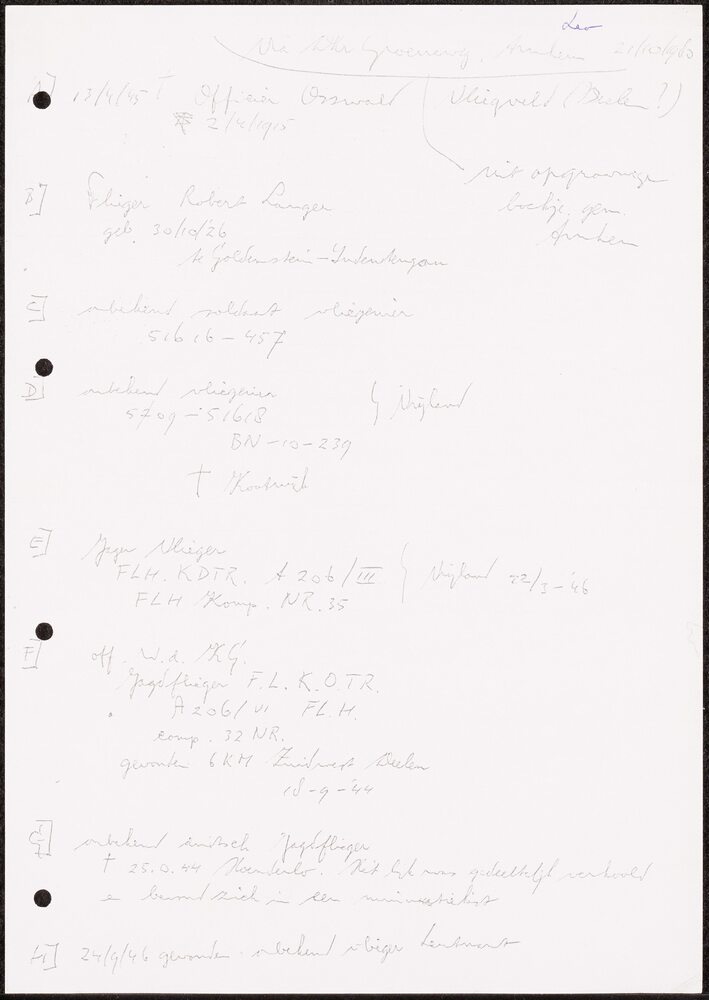 Leo
via Dhr Groeneweg, Arnhem 21/10/1980
A] 13/4/45 † Officier Osswald Vliegveld (Deelen?)
* 2/4/1915
uit opgravings
boekje gem.
Arnhem
B] Flieger Robert Langer
geb 30/10/26
te Goldenstein - Sudetengau
C] onbekend soldaat vliegenier
51616 - 457
D] onbekend vliegenier Vrijland
5709 - 51618
BN - 10 - 239
† Kootwijk
E] Jager Vlieger
FLH. KDTR. A 206/III Vrijland 22/3-'46
FLH Komp. NR. 35
F] off. W.d. KG.
Jagdflieger F.L.K.D.TR.
A 206/VI FL.H.
comp. 32 NR.
gevonden 6 KM Zuidwest Deelen
18-9-44
G] onbekend duitsch Jagdflieger
† 25.0.44 Hoenderlo. Het lijk was gedeeltelijk verkoold
en bevond zich in een munitiekist
H] 24/9/46 gevonden onbekend vlieger Leutnant